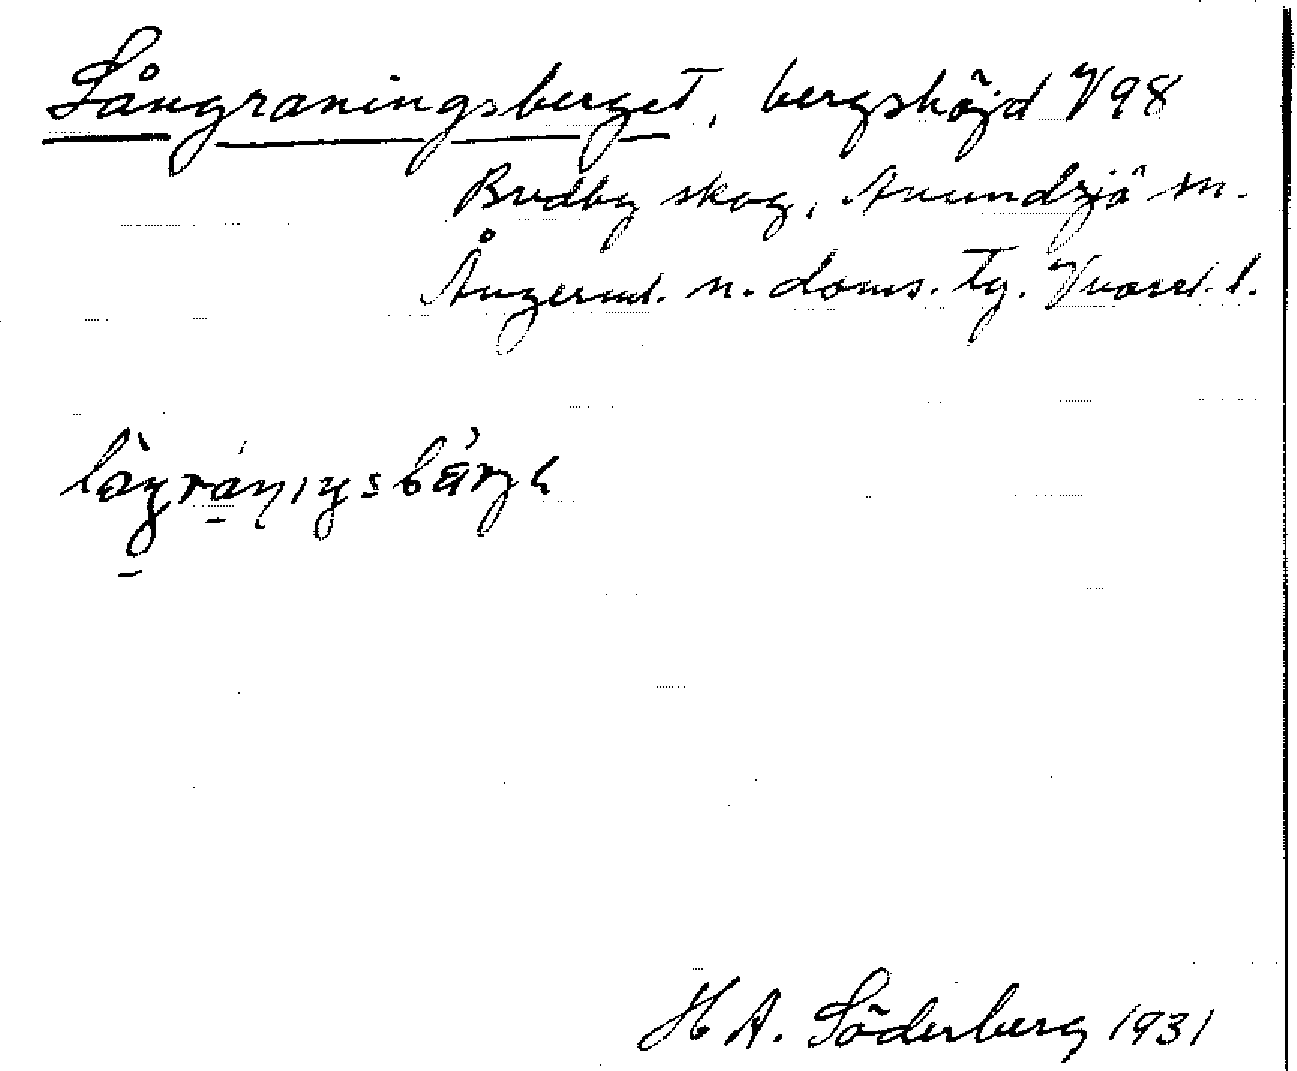 Långraningsberget, bergshöjd V98
Bredby skog, Anundsjö sn.
Ångerml. n. doms. tg. Västl. l.
H A. Söderberg 1931